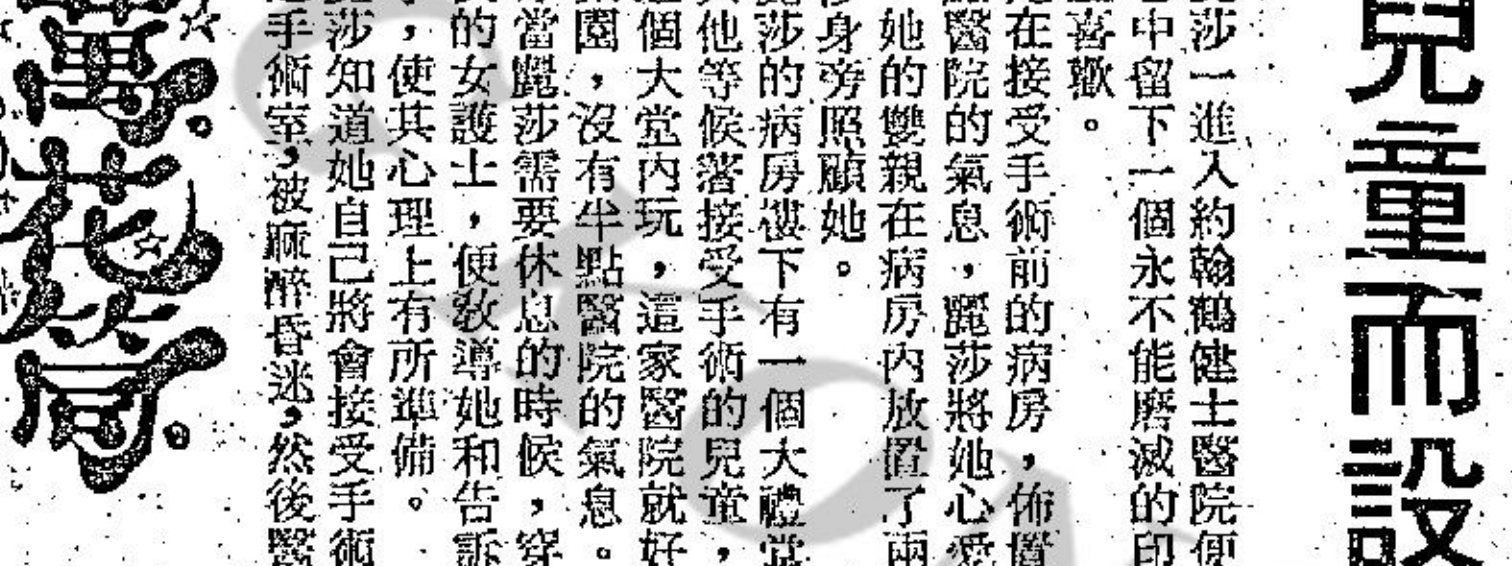 兒童而設
莎一進入約翰鶴健士醫院便
中留下一個永不能磨滅的印
喜歡。
在接受手術前的病房,佈置
醫院的氣息,麗莎將她心愛
她的雙親在病房內放置了兩
身旁照顧她。
莎的病房樓下有一個大禮堂
他等候着接受手術的兒童,
個大堂內玩,這家醫院就好
園,沒有半點醫院的氣息。
當麗莎需要休息的時候,穿
的女護士,便教導她和告訴
,使其心理上有所準備。
莎知道她自己將會接受手術
手術室,被麻醉昏迷,然後醫
萬花筒